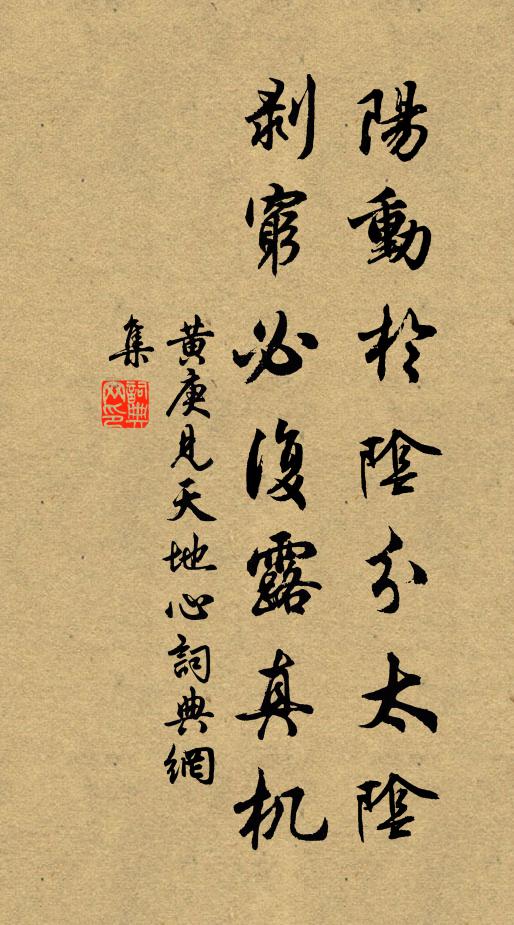 陽動於陰分太陰
剥窮必復露真机
黄庚見天地心詞典網
集
詞典網印